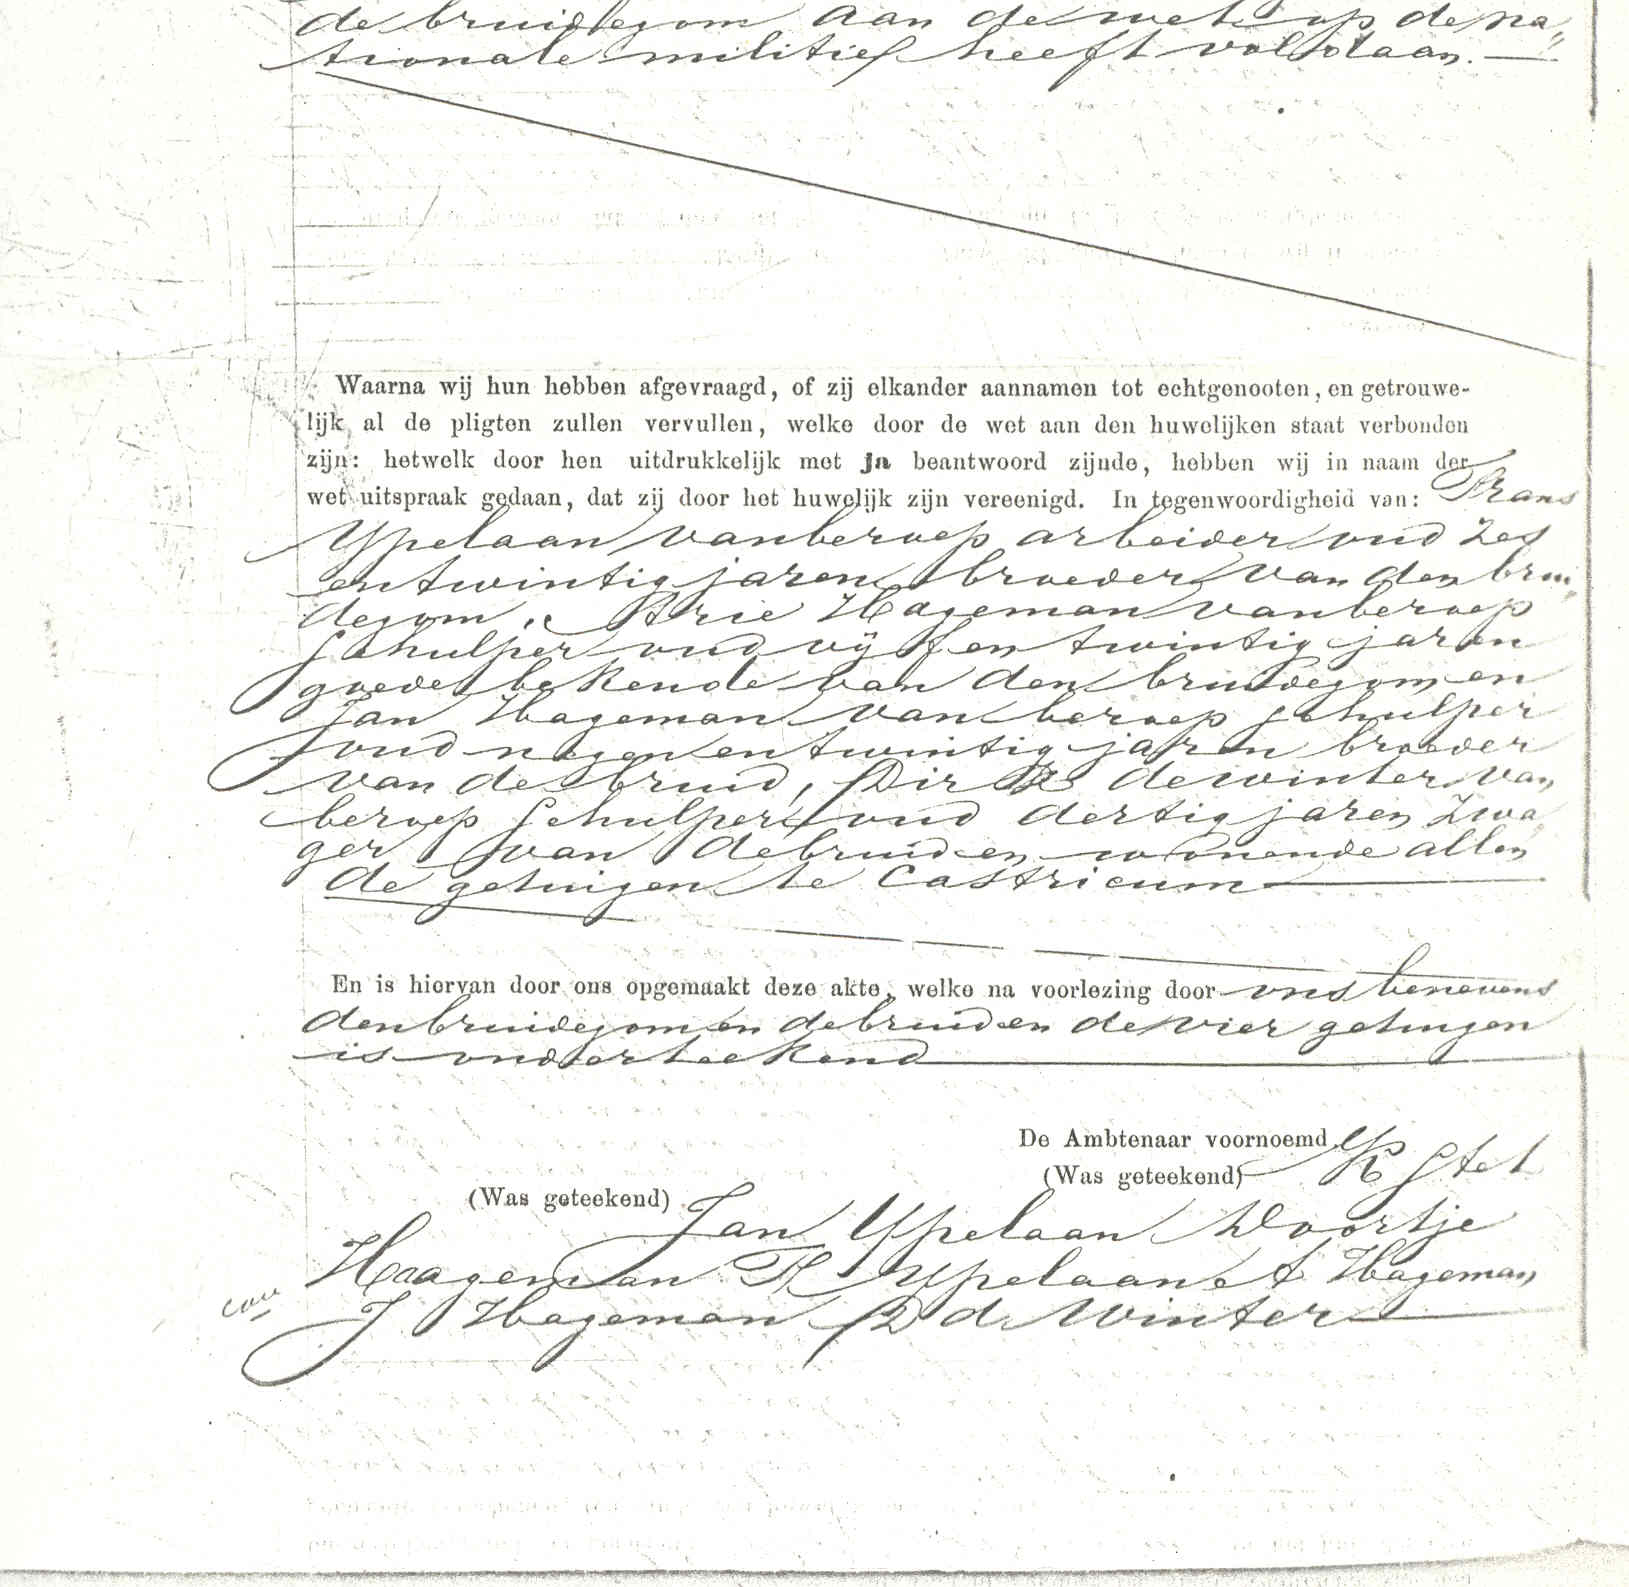 de bruidegom aan de wet op de na„
tionale militie heeft voldaan.
Waarna wij hun hebben afgevraagd, of zij elkander aannamen tot echtgenooten, en getrouwe-
lijk al de pligten zullen vervullen, welke door de wet aan den huwelijken staat verbonden
zijn: hetwelk door hen uitdrukkelijk met ja beantwoord zijnde, hebben wij in naam der
wet uitspraak gedaan, dat zij door het huwelijk zijn vereenigd. In tegenwoordigheid van: Frans
Ypelaan van beroep arbeider oud zes
en twintig jaren broeder van den brui„
degom, Arie Hageman van beroep
schulper oud vijf en twintig jaren
goede bekende van den bruidegom, en
Jan Hageman van beroep schulper
oud negen en twintig jaren broeder
van de bruid, Dirk de winter van
beroep schulper oud dertig jaren zwa
ger van de bruid en wonende allen
de getuigen te Castricum
En is hiervan door ons opgemaakt deze akte, welke na voorlezing door ons benevens
den bruidegom en de bruid en de vier getuigen
is onderteekend
De Ambtenaar voornoemd
(Was geteekend) K Stet
(Was geteekend) Jan Ypelaan Doortje
Haageman F Ypelaan A Hageman
J Hageman D d Winter